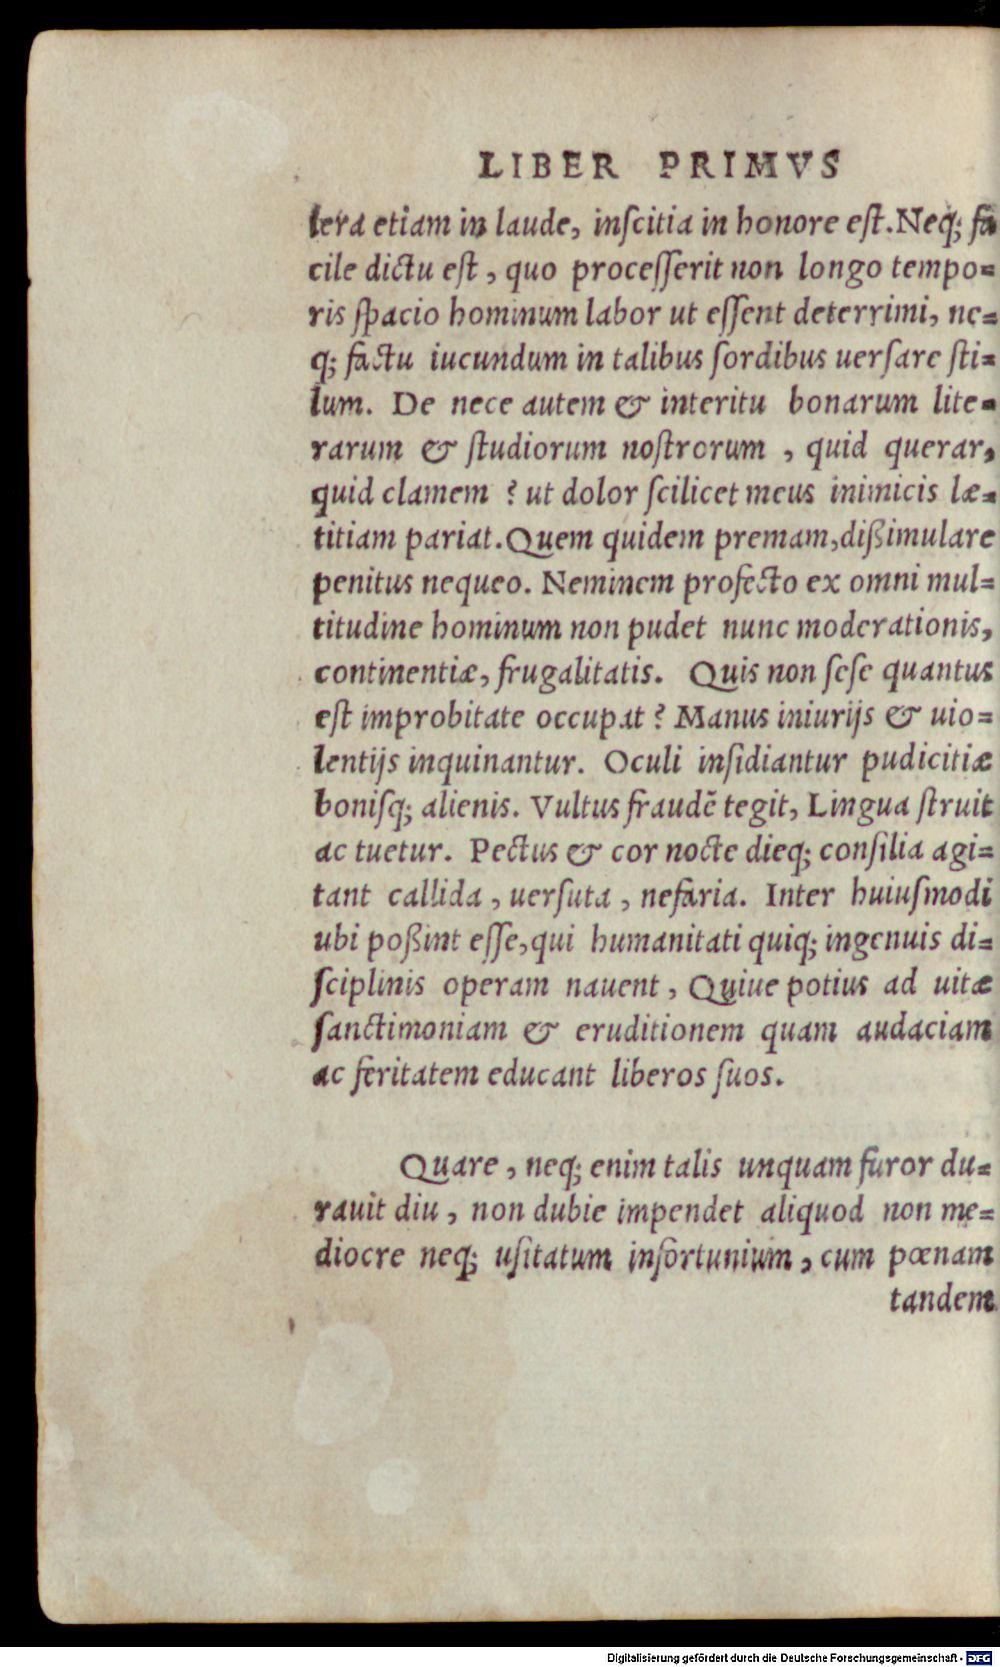 LIBER PRIMVS
lera etiam in laude, inſcitia in honore eſt. Neq; fa
cile dictu eſt, quo proceſſerit non longo tempo-
ris ſpacio hominum labor ut eſſent deterrimi, ne-
q; factu iucundum in talibus ſordibus uerſare ſti-
lum. De nece autem & interitu bonarum lite-
rarum & ſtudiorum noſtrorum, quid querar,
quid clamem? ut dolor ſcilicet meus inimicis læ-
titiam pariat. Quem quidem premam, dißimulare
penitus nequeo. Neminem profecto ex omni mul-
titudine hominum non pudet nunc moderationis,
continentiæ, frugalitatis. Quis non ſeſe quantus
eſt improbitate occupat? Manus iniurijs & uio-
lentijs inquinantur. Oculi inſidiantur pudicitiæ
boniſq; alienis. Vultus fraudē tegit, Lingua ſtruit
ac tuetur. Pectus & cor nocte dieq; conſilia agi-
tant callida, uerſuta, nefaria. Inter huiuſmodi
ubi poßint eſſe, qui humanitati quiq; ingenuis di-
ſciplinis operam nauent, Quiue potius ad uitæ
ſanctimoniam & eruditionem quam audaciam
ac feritatem educant liberos ſuos.
Quare, neq; enim talis unquam furor du-
rauit diu, non dubie impendet aliquod non me-
diocre neq; uſitatum infortunium, cum pœnam
tandem
Digitalisierung gefördert durch die Deutsche Forschungsgemeinschaft - DFG